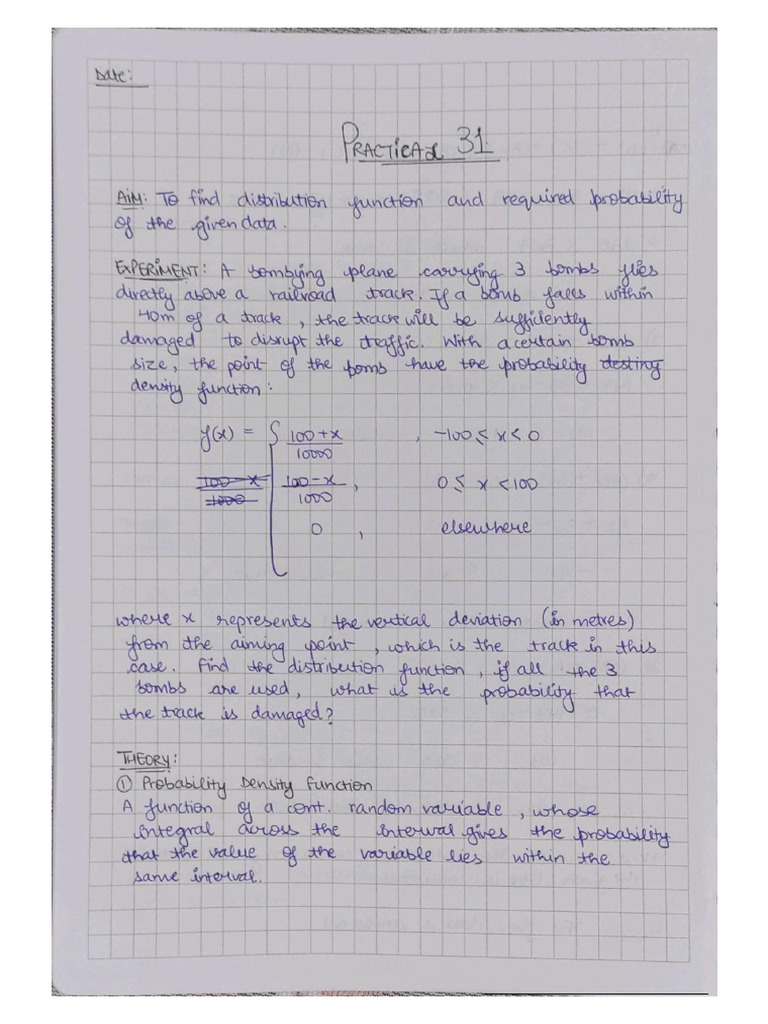 Date:
PRACTICAL 31
AIM: To find distribution function and required probability
of the given data.
EXPERIMENT: A bombying plane carrying 3 bombs flies
directly above a railroad track. If a bomb falls within
40m of a track, the track will be sufficiently
damaged to disrupt the traffic. With a certain bomb
size, the point of the bombs have the probability destiny
density function:
f(x) = { 100+x / 10000 , -100 ≤ x < 0
100-x / 1000 100-x / 1000 , 0 ≤ x < 100
0 , elsewhere
where x represents the vertical deviation (in metres)
from the aiming point, which is the track in this
case. Find the distribution function, if all the 3
bombs are used, what is the probability that
the track is damaged?
THEORY:
① Probability Density Function
A function of a cont. random variable, whose
integral across the interval gives the probability
that the value of the variable lies within the
same interval.